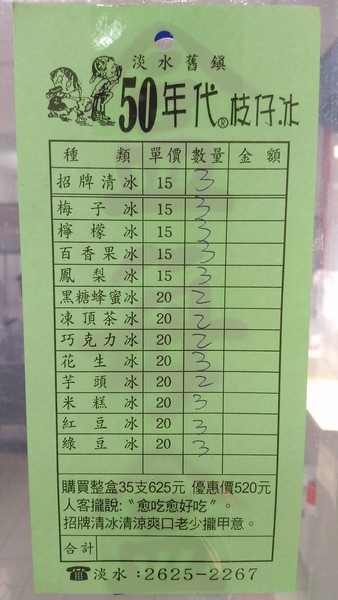 淡水舊鎮
50年代®枝仔冰
種類 單價 數量 金額
招牌清冰 15 3
梅子冰 15 3
檸檬冰 15 3
百香果冰 15 3
鳳梨冰 15 3
黑糖蜂蜜冰 20 2
凍頂茶冰 20 2
巧克力冰 20 2
花生冰 20 3
芋頭冰 20 2
米糕冰 20 3
紅豆冰 20 3
綠豆冰 20 3
購買整盒35支625元 優惠價520元
人客攏說:〝愈吃愈好吃〞。
招牌清冰清涼爽口老少攏甲意。
合計
☎淡水:2625-2267